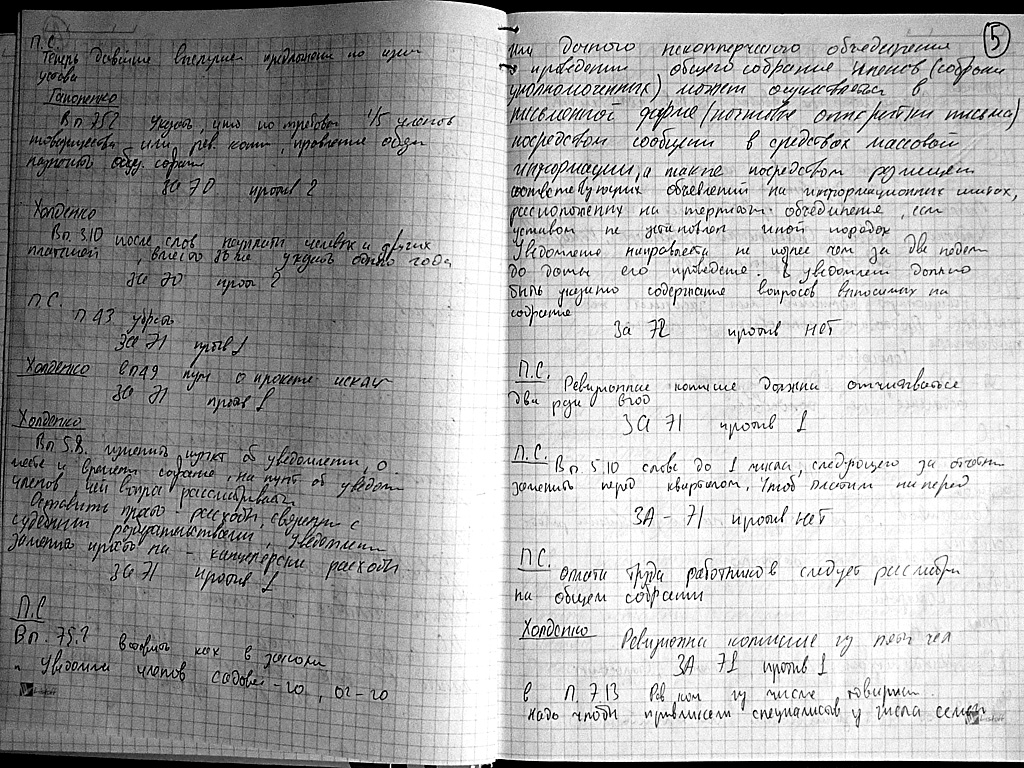 П.С.
Теперь давайте выслушаем предложения по изм.
устава
Гапоненко
В п 7.5.2 указать, что по требов 1/5 членов
товарищества или рев. коми, правление обяз
назначит общ. собран
За 70 против 2
Холденко
В п. 3.10 после слов неуплаты членск и других
платежей, вместо более указать более года
За 70 против 2
П.С.
п. 4.3 убрать
За 71 против 1
Холденко в п 4.9 пун о искл
За 71 против 1
Холденко
В п 5.8. изменить пункт об уведомлении, о
месте и времени собрание, на пункт об уведом
членов чей вопрос рассматрив
Оставить право расходы, связанн с
судебным разбирательством, уведомлени
заменить на – канцелярские расходы.
За 71 против 1
П.С
В п. 7.5.2 вставить как в законе
" Уведомлен членов садовод-го, ог-го
или дачного некоммерческого объединения
о проведении общего собрания членов (собрани
уполномоченных) может осуществляться в
письменной форме (почтовые открытки письма)
посредством сообщений в средствах массовой
информации, а также посредством размещен
соответствующих объявлений на информационных щитах,
расположенных на территори объединения, если
уставом не установлен иной порядок
Уведомление направляется не позднее чем за две недели
до даты его проведения. в уведомлен должно
быть указано содержание вопросов выносимых на
собрание
За 72 против НЕТ
П.С. Ревизионная комиссия должна отчитываться
два раза в год
ЗА 71 против 1
П.С. В п 5.10 слова до 1 числа, следующего за отчетн
заменить перед кварталом, чтоб платили наперед
ЗА – 71 против нет
ПС. оплата труда работников следует рассматри
на общем собрании
Холденко Ревизионна комиссия из пяти чел
ЗА 71 против 1
в п. 7.13 Рев ком из числа товарищ.
надо чтобы привлекали специалистов из числа семьи
5